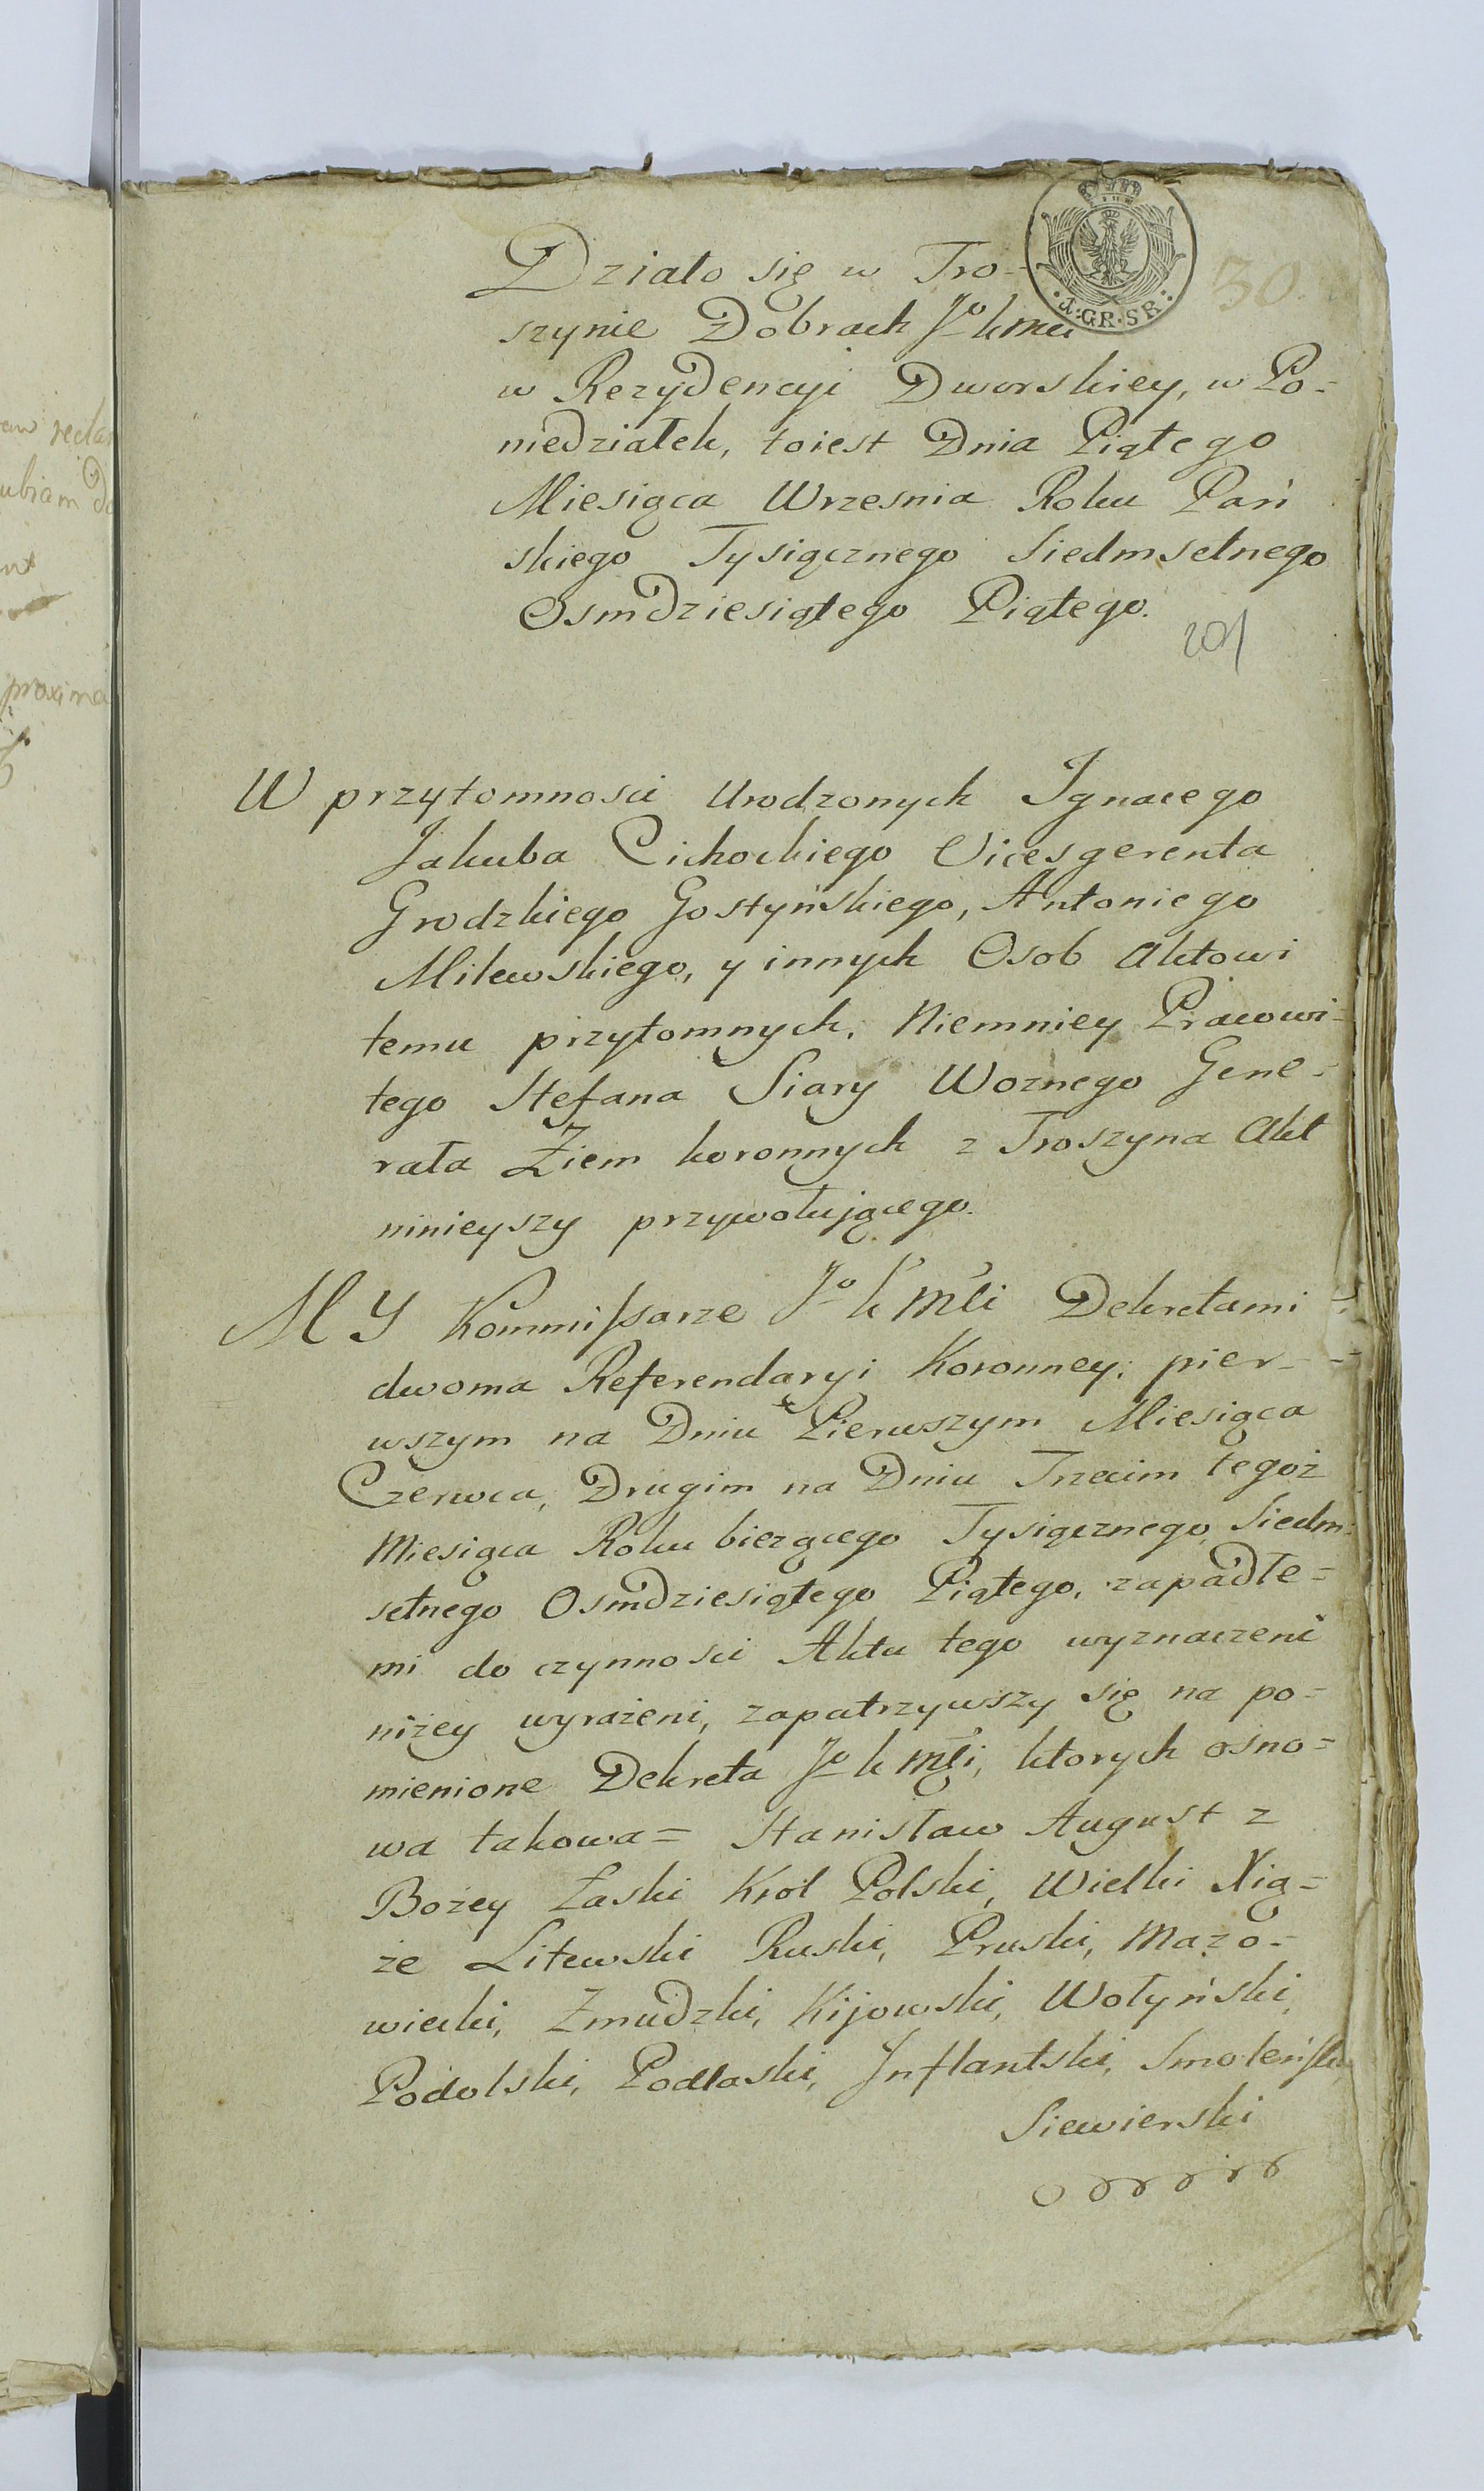 Działo się w Tro-
szynie Dobrach Jo K Mci
w Rezydencyi Dworskiey, w Po-
niedziałek, toiest Dnia Piątego
Miesiąca Wrzesnia Roku Pań
skiego Tysiącznego Siedmsetnego
Osmdziesiątego Piątego.
1.GR.SR.
30.
201
W przytomnosci Urodzonych Ignacego
Jakuba Cichockiego Vicesgerenta
Grodzkiego Gostyńskiego, Antoniego
Milewskiego, y innych Osob Aktowi
temu przytomnych, Niemniey Pracowi-
tego Stefana Siary Woznego Gene-
rała Ziem koronnych z Troszyna Akt
ninieyszy przywołującego.
MY Kommissarze Jo K Mći Dekretami
dwoma Referendaryi Koronney, pier-
wszym na Dniu Pierwszym Miesiąca
Czerwca, Drugim na Dniu Trzecim tegoż
Miesiąca Roku bieżącego Tysiącznego Siedm
setnego Osmdziesiątego Piątego, zapadłe=
mi do czynnosci Aktu tego wyznaczeni
niżey wyrażeni, zapatrzywszy się na po=
mienione Dekreta Jo K Mći, ktorych osno=
wa takowa= Stanisław August z
Bożey Łaski Krol Polski, Wielki Xią=
że Litewski Ruski, Pruski, Mazo-
wiecki, Zmudzki, Kijowski, Wołyński,
Podolski, Podlaski, Jnflantski, Smoleński
Siewierski
aw
ubiam
proxima